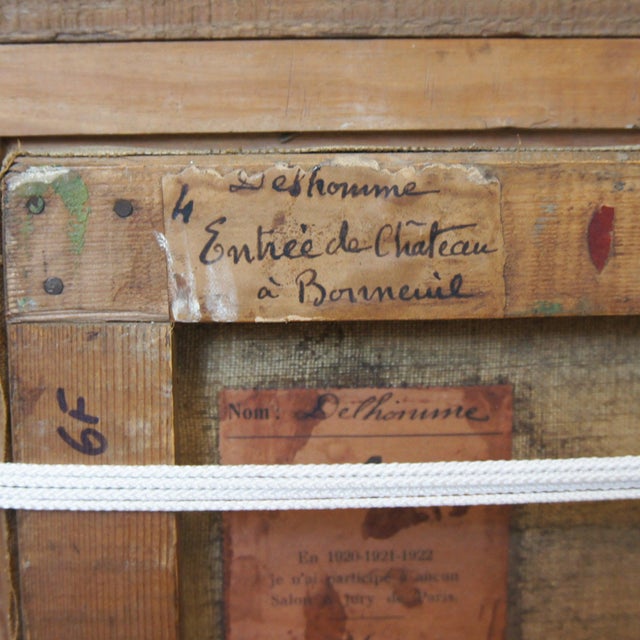 4 Delhomme
Entrée de Château
à Bonneuil
6F
Nom: Delhomme
En 1920-1921-1922
je n'ai participé à aucun
Salon à jury de Paris.